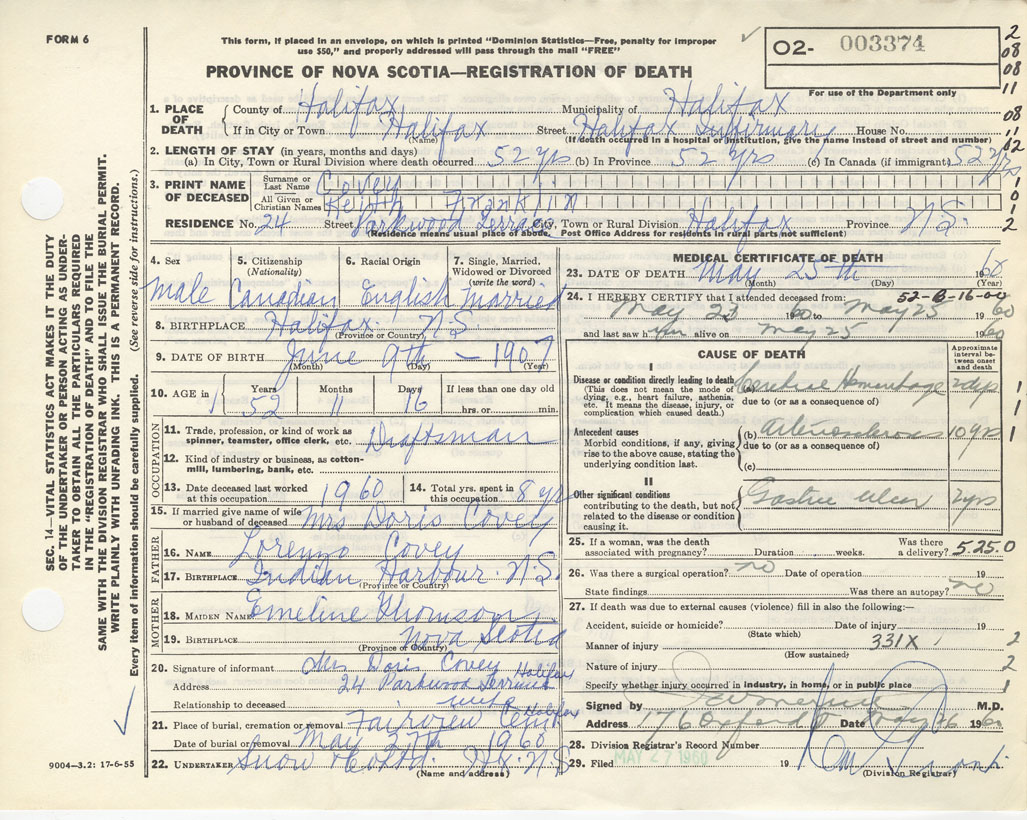 FORM 6
This form, if placed in an envelope, on which is printed "Dominion Statistics—Free, penalty for improper
use $50," and properly addressed will pass through the mail "FREE"
PROVINCE OF NOVA SCOTIA—REGISTRATION OF DEATH
02- 003374
For use of the Department only
2
08
08
11
08
11
02
1. PLACE OF DEATH
County of Halifax Municipality of Halifax
If in City or Town Halifax Street Halifax Infirmary House No.
(Name) (If death occurred in a hospital or institution, give the name instead of street and number)
2. LENGTH OF STAY (in years, months and days)
(a) In City, Town or Rural Division where death occurred 52 yrs (b) In Province 52 yrs (c) In Canada (if immigrant) 52 yrs
3. PRINT NAME OF DECEASED
Surname or Last Name Covey
All Given or Christian Names Keith Franklin
RESIDENCE No. 24 Street Parkwood Terrace City, Town or Rural Division Halifax Province N.S.
(Residence means usual place of abode. Post Office Address for residents in rural parts not sufficient)
4. Sex
male
5. Citizenship
(Nationality)
Canadian
6. Racial Origin
English
7. Single, Married, Widowed or Divorced
(write the word)
Married
8. BIRTHPLACE Halifax N.S.
(Province or Country)
9. DATE OF BIRTH June 9th — 1907
(Month) (Day) (Year)
10. AGE in
Years 52
Months 11
Days 16
If less than one day old
hrs. or min.
OCCUPATION
11. Trade, profession, or kind of work as spinner, teamster, office clerk, etc. Draftsman
12. Kind of industry or business, as cotton-mill, lumbering, bank, etc.
13. Date deceased last worked at this occupation 1960
14. Total yrs. spent in this occupation 8 yrs
15. If married give name of wife or husband of deceased Mrs Doris Covey
FATHER
16. NAME Lorenzo Covey
17. BIRTHPLACE Indian Harbour N.S.
(Province or Country)
MOTHER
18. MAIDEN NAME Emeline Thomson
19. BIRTHPLACE Nova Scotia
(Province or Country)
20. Signature of informant Mrs Doris Covey
Address 24 Parkwood Terrace Halifax
Relationship to deceased
21. Place of burial, cremation or removal Fairview Halifax
Date of burial or removal May 27th 1960
22. UNDERTAKER Snow & Co Ltd. Hx. N.S.
(Name and address)
MEDICAL CERTIFICATE OF DEATH
23. DATE OF DEATH May 25th 1960
(Month) (Day)
24. I HEREBY CERTIFY that I attended deceased from: 52-B-16-00
May 23 1960 to May 25 1960
and last saw him alive on May 25 1960
CAUSE OF DEATH
Approximate interval between onset and death
I
Disease or condition directly leading to death
(This does not mean the mode of dying, e.g., heart failure, asthenia, etc. It means the disease, injury, or complication which caused death.)
(a) Cerebral Hemorrhage 2 days
due to (or as a consequence of)
Antecedent causes
Morbid conditions, if any, giving rise to the above cause, stating the underlying condition last.
(b) Arteriosclerosis 10 yrs
due to (or as a consequence of)
(c)
II
Other significant conditions
contributing to the death, but not related to the disease or condition causing it.
Gastric Ulcer 2 yrs
25. If a woman, was the death associated with pregnancy? Duration weeks. Was there a delivery? 5.25.0
26. Was there a surgical operation? no Date of operation 19
State findings Was there an autopsy? no
27. If death was due to external causes (violence) fill in also the following:—
Accident, suicide or homicide? Date of injury 19
(State which)
Manner of injury 331X
(How sustained)
Nature of injury
Specify whether injury occurred in industry, in home, or in public place
Signed by M.D.
Address 176 Oxford Date May 26 1960
28. Division Registrar's Record Number
29. Filed MAY 27 1960 19
(Division Registrar)
SEC. 14—VITAL STATISTICS ACT MAKES IT THE DUTY
OF THE UNDERTAKER OR PERSON ACTING AS UNDER-
TAKER TO OBTAIN ALL THE PARTICULARS REQUIRED
IN THE "REGISTRATION OF DEATH" AND TO FILE THE
SAME WITH THE DIVISION REGISTRAR WHO SHALL ISSUE THE BURIAL PERMIT.
WRITE PLAINLY WITH UNFADING INK. THIS IS A PERMANENT RECORD.
Every item of information should be carefully supplied. (See reverse side for instructions.)
9004—3.2: 17-6-55